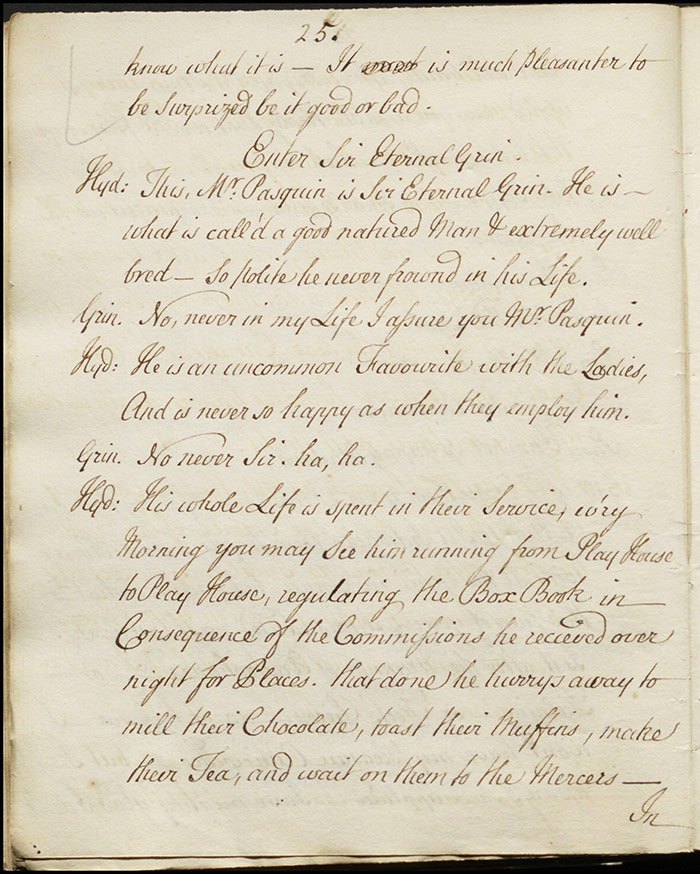 25.
know what it is — It is much pleasanter to
be Surprized be it good or bad.
Enter Sir Eternal Grin.
Hyd: This, Mr. Pasquin is Sir Eternal Grin. He is —
what is call'd a good natured Man & extremely well
bred — So polite he never frown'd in his Life.
Grin. No, never in my Life I assure you Mr. Pasquin.
Hyd: He is an uncommon Favourite with the Ladies,
And is never so happy as when they employ him.
Grin. No never Sir. ha, ha.
Hyd: His whole Life is spent in their Service, ev'ry
Morning you may See him running from Play House
to Play House, regulating the Box Book in —
Consequence of the Commissions he recieved over
night for Places. that done he hurrys away to
mill their Chocolate, toast their Muffins, make
their Tea, and wait on them to the Mercers —
In